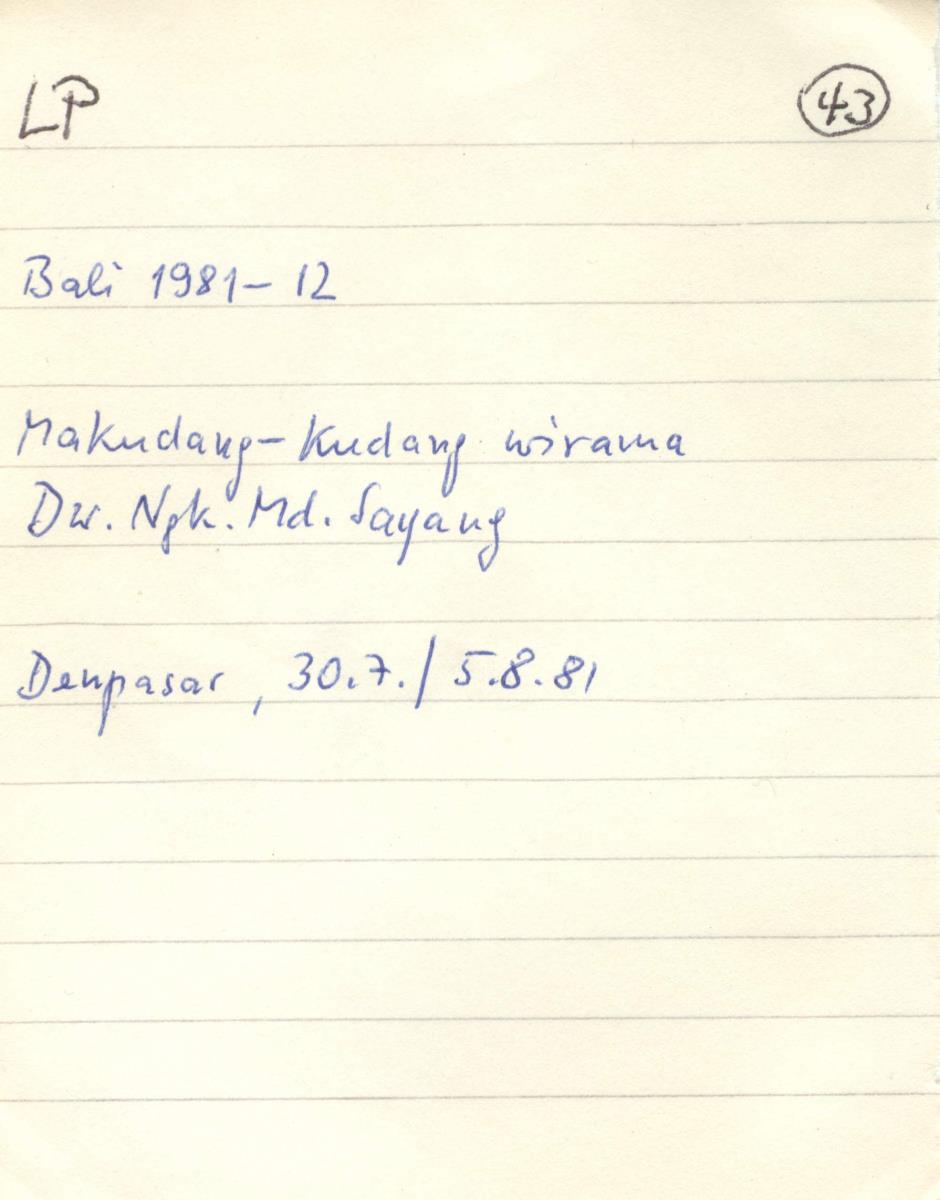 LP
43
Bali 1981-12
Makudang-kudang wirama
Dw. Ngk. Md. Sayang
Denpasar, 30.7./5.8.81